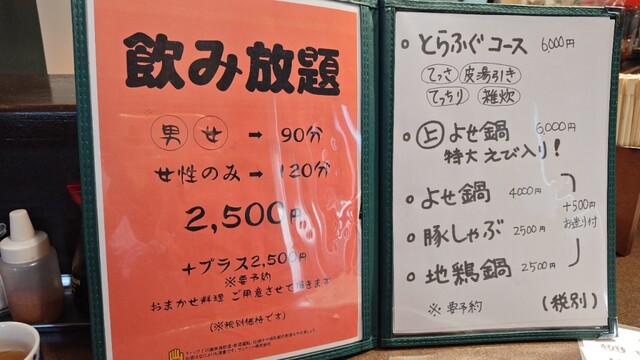 飲み放題
男 女 → 90分
女性のみ → 120分
2,500円
+プラス2,500円
※要予約
おまかせ料理 ご用意させて頂きます
(※税別価格です)
とらふぐコース 6000円
てっさ 皮湯引き
てっちり 雑炊
上 よせ鍋 6,000円
特大 えび入り!
よせ鍋 4000円
豚しゃぶ 2500円
地鶏鍋 2500円
+500円
お造り付
※要予約
(税別)